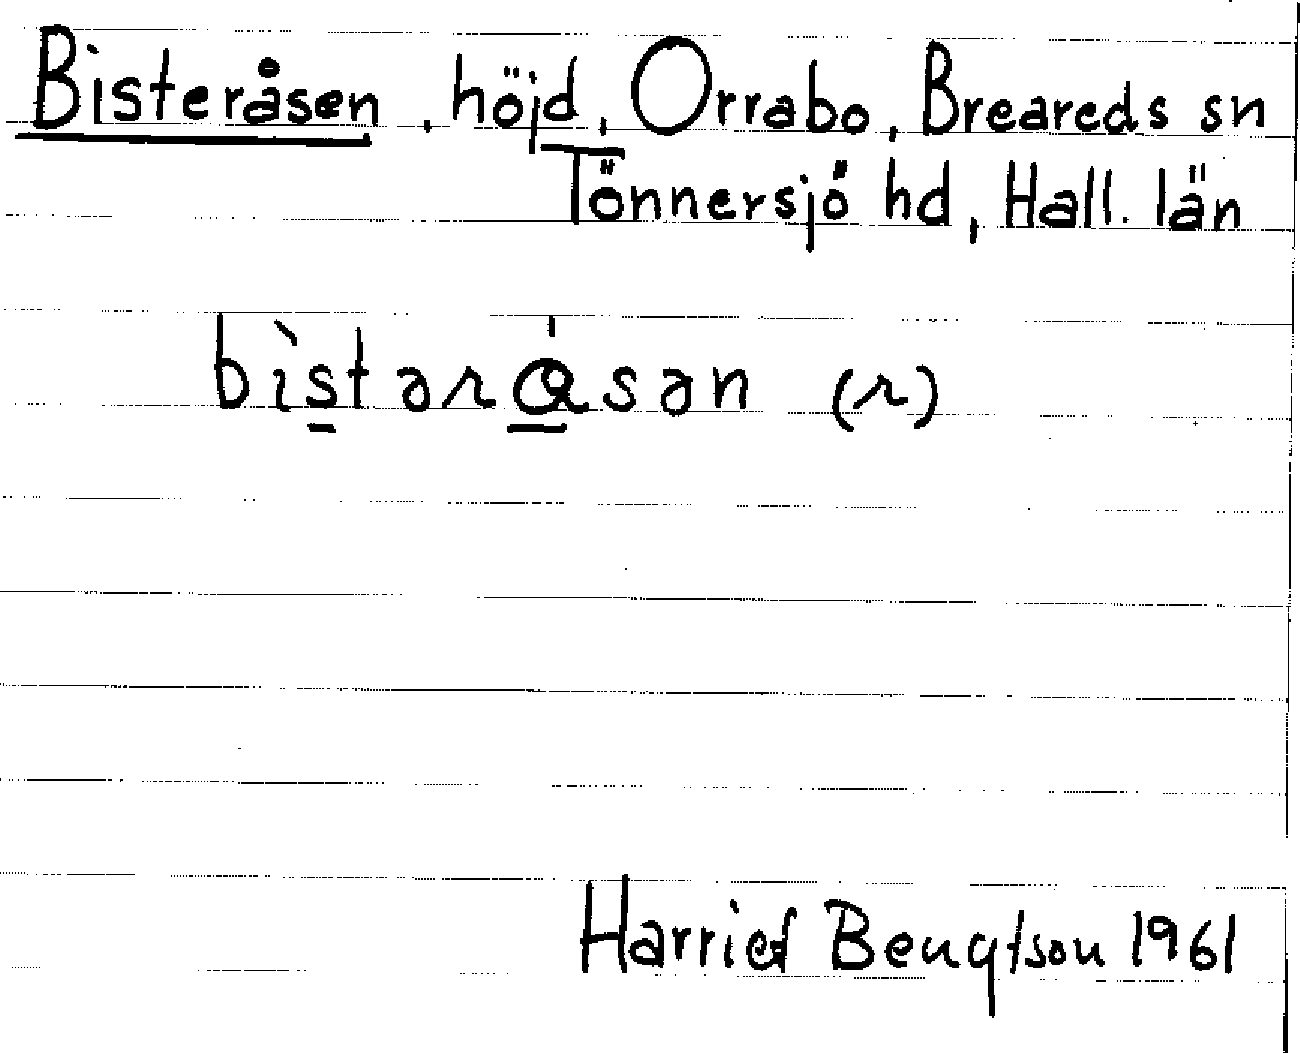 Bisteråsen, höjd, Orrabo, Breareds sn
Tönnersjö hd, Hall. län
bìstəråsən (r)
Harriet Bengtson 1961